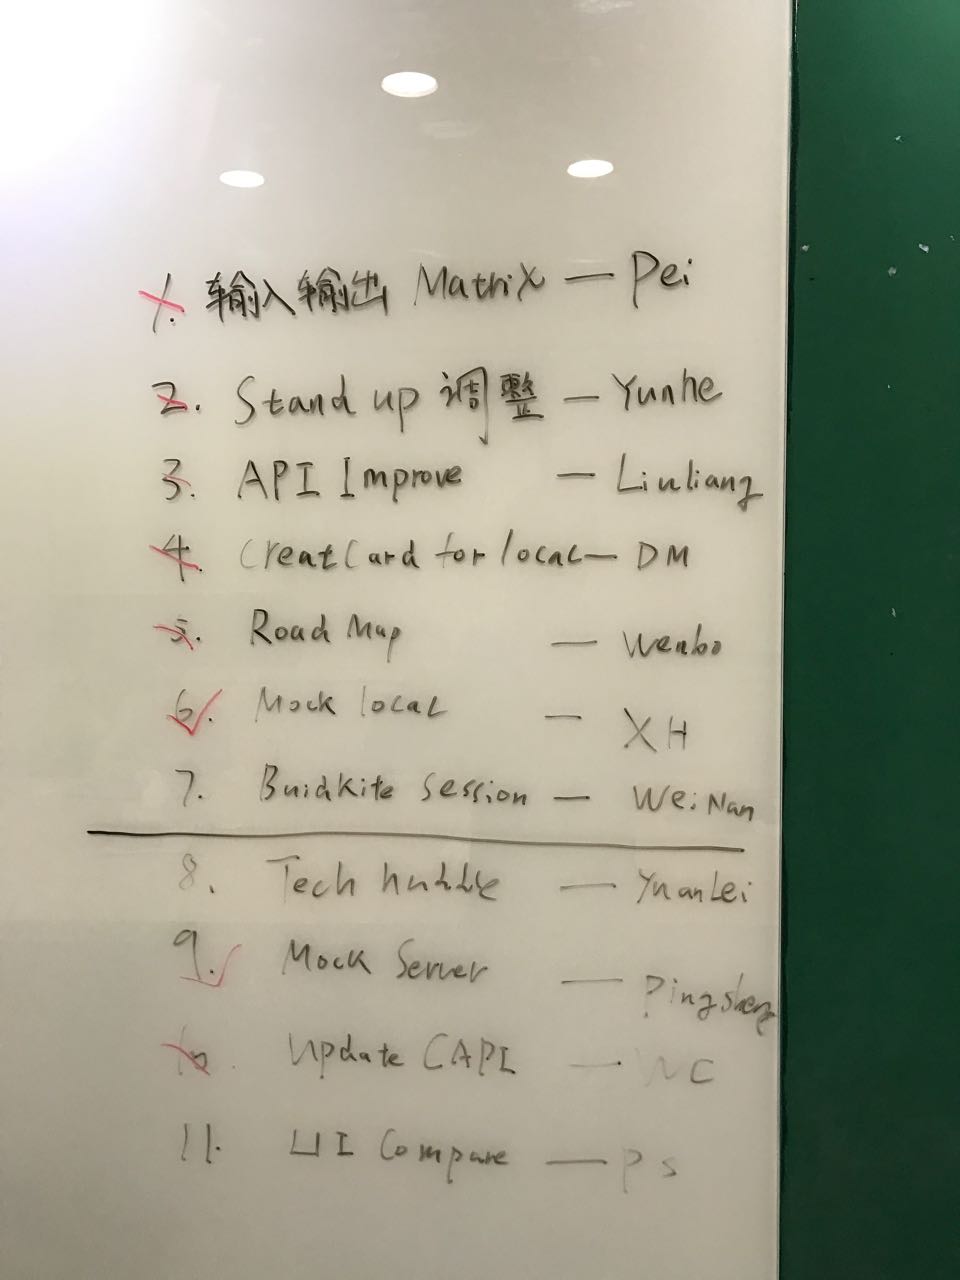 1. 输入输出 Matrix — Pei
2. Stand up 调整 — Yunhe
3. API Improve — Liuliang
4. Creat Card for local — DM
5. Road Map — Wenbo
6. Mock local — XH
7. Buidkite session — WeiNan
8. Tech huddle — YuanLei
9. Mock Server — Pingsheng
10. Update CAPI — WC
11. UI Compare — PS